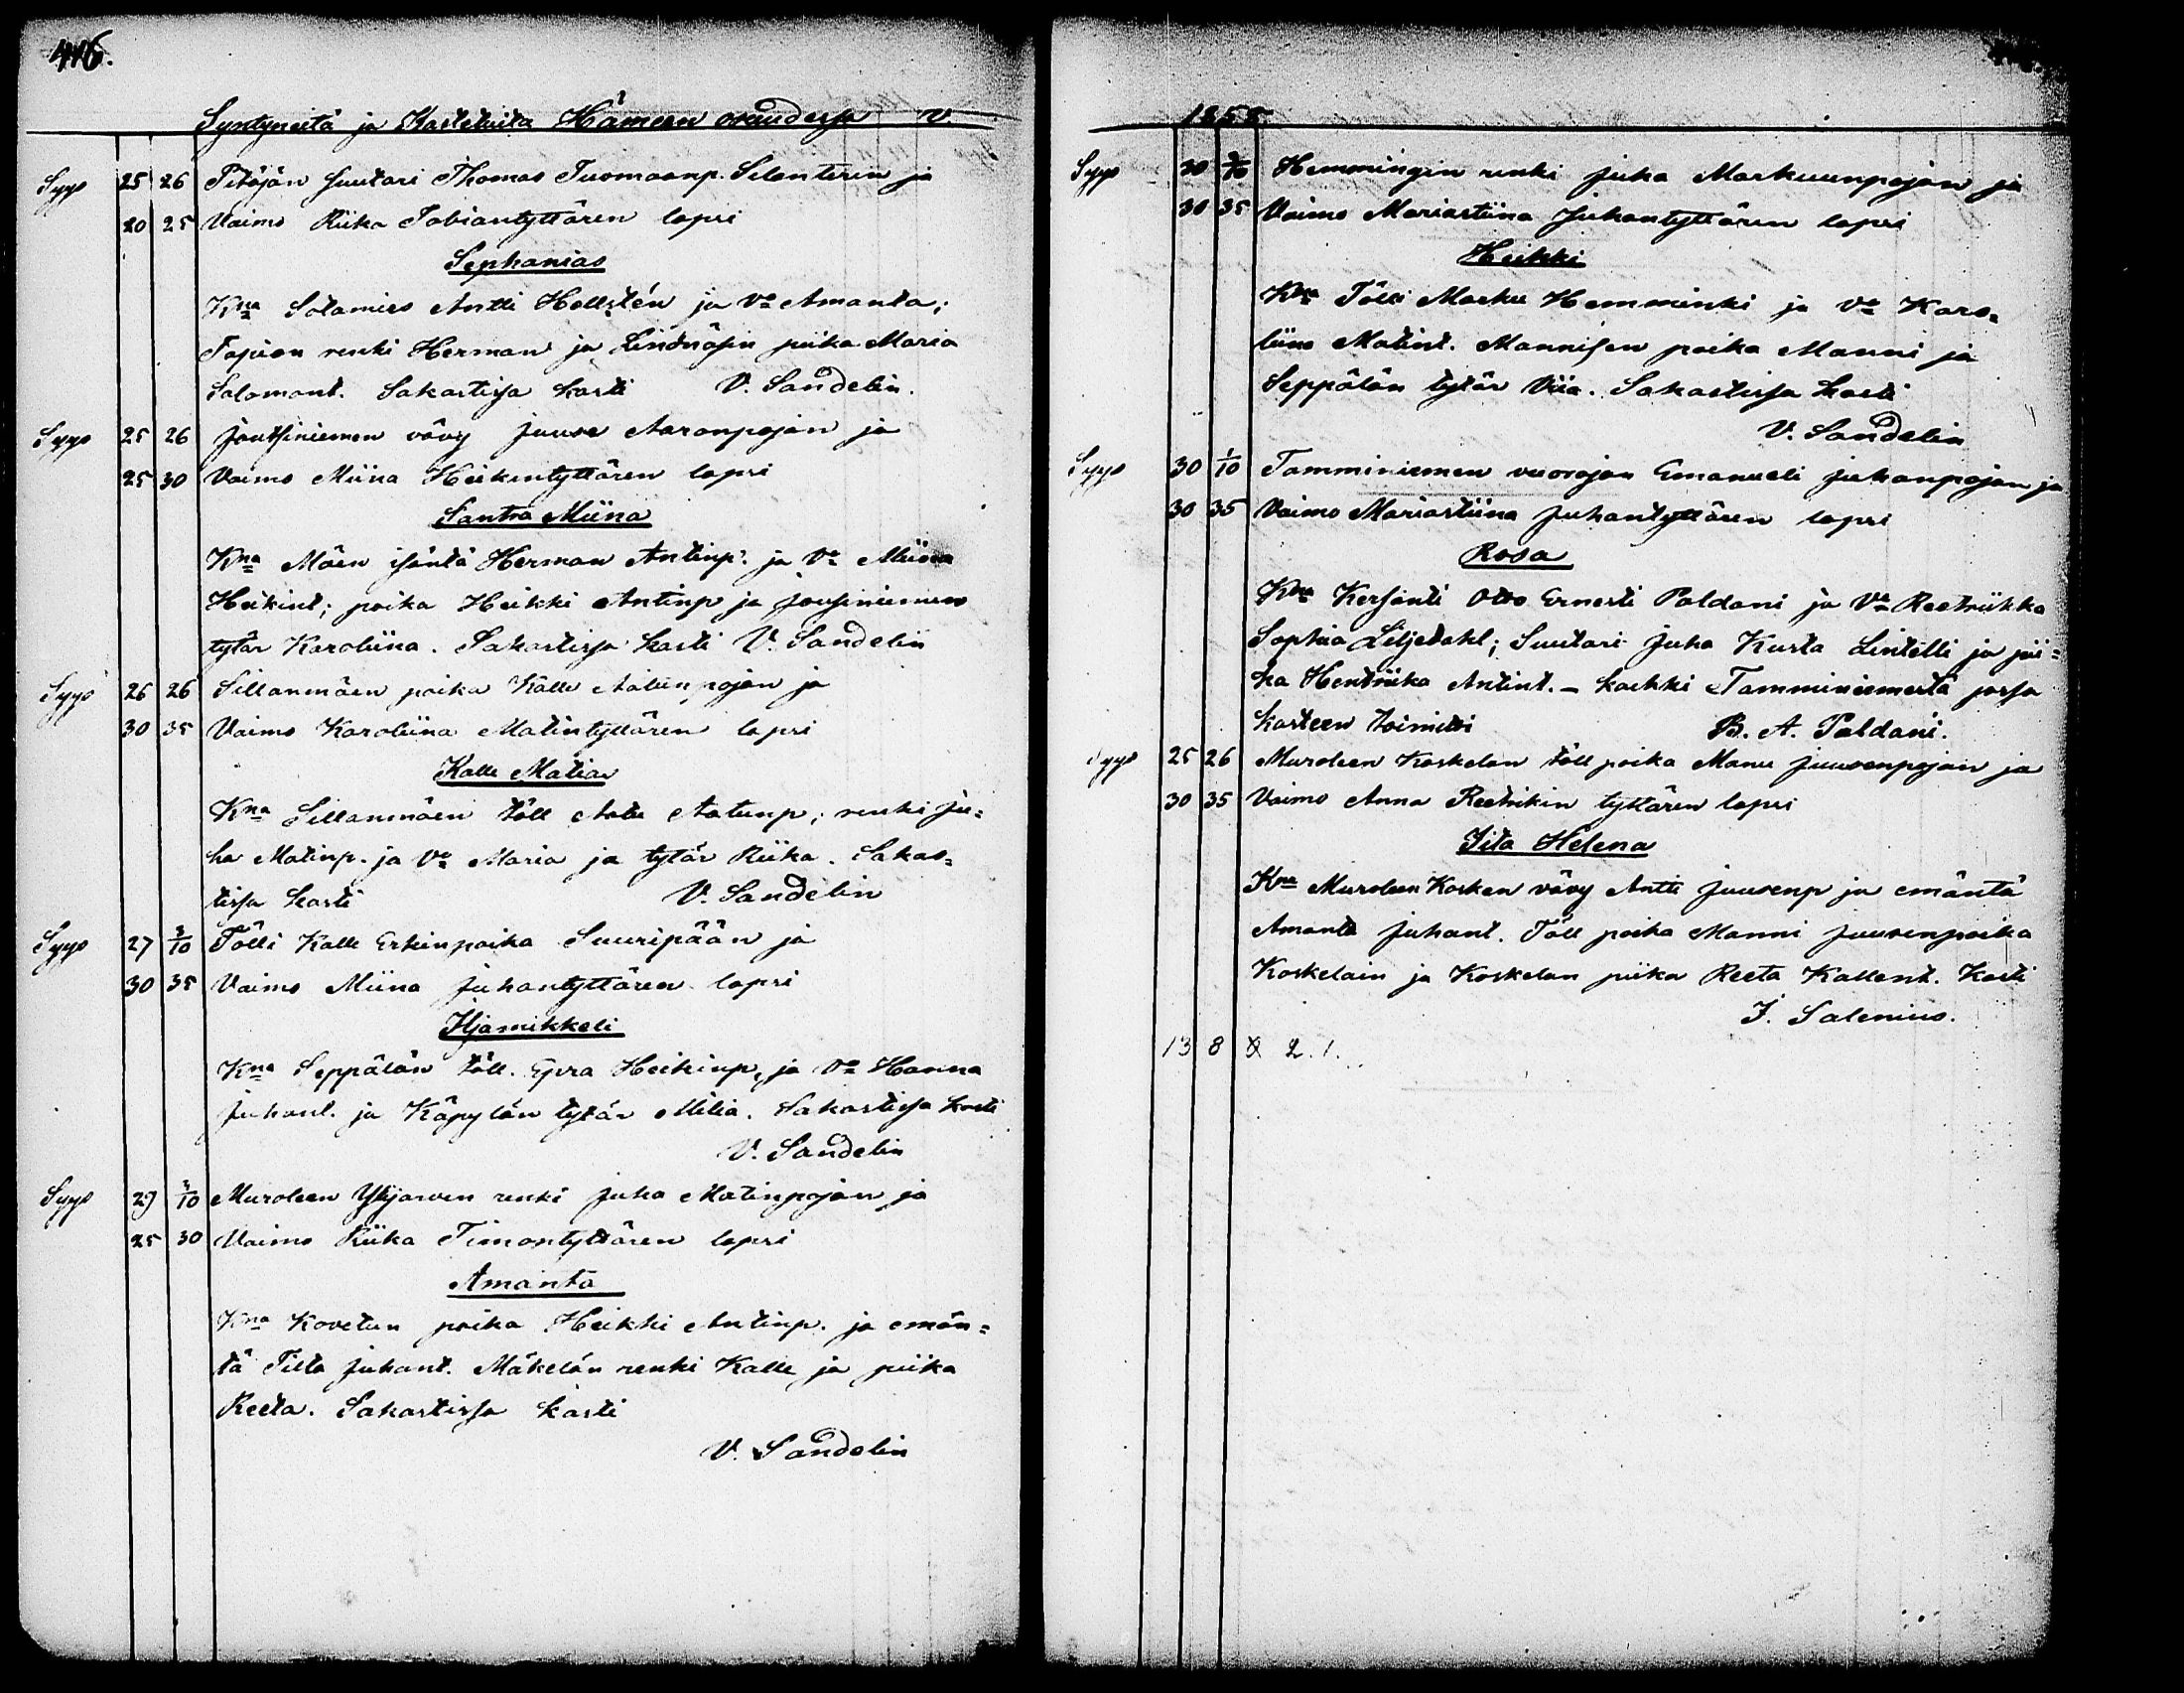 416.
Syntyneitä ja Kastetuita Hämeen osuudessa V.
Syys 25 26 Pitäjän suutari Thomas Tuomaanp. Selanterin ja
20 25 Vaimo Riika Tobiantyttären lapsi
Sephanias
Kna Sotamies Antti Hellstén ja Va Amanta;
Tapion renki Herman ja piika Maria
Salamont. Sakastissa kasti V. Sandelin.
Syys 25 26 Joutsiniemen vävy Juuse Aaronpojan ja
25 30 Vaimo Miina Heikintyttären lapsi
Santra Miina
Kna Mäen isäntä Herman Antinp. ja Va Miina
Heikint; poika Heikki Antinp ja Jousiniemen
tytär Karoliina. Sakastissa kasti V. Sandelin
Syys 26 26 Sillanmäen poika Kalle Aatunpojan ja
30 35 Vaimo Karoliina Matintyttären lapsi
Kalle Matias
Kna Sillanmäen töll Aatu Aatunp; renki Ju=
ha Matinp. ja Va Maria ja tytär Riika. Sakas=
tissa kasti V. Sandelin
Syys 27 3/10 Tölli Kalle Erkinpoika Suuripään ja
30 35 Vaimo Miina Juhantyttären lapsi
Iljamikkeli
Kna Seppälän töll. Esra Heikinp, ja Va Hanna
Juhant. ja Käpylän tytär Milia. Sakastissa kasti
V. Sandelin
Syys 29 3/10 Muroleen Yhjarven renki Juha Matinpojan ja
25 30 Vaimo Riika Timontyttären lapsi
Amanta
Kna Kovetun poika Heikki Antinp. ja emän=
tä Tilta Juhant. Mäkelän renki Kalle ja piika
Reeta. Sakastissa kasti
V. Sandelin
1855
Syys 30 3/10 Hemmingin renki Juha Markuunpojan ja
30 35 Vaimo Mariastiina Juhantyttären lapsi
Heikki
Kna Tölli Marku Hemminki ja Va Karo=
liina Matint. Mannisen poika Manni ja
Seppälän tytär Viia. Sakastissa kasti
V. Sandelin
Syys 30 1/10 Tamminiemen vuorojan Emanueli Juhanpojan ja
30 35 Vaimo Mariastiina Juhantyttären lapsi
Rosa
Kna Kersanti Otto Ernesti Paldani ja Va Reetriikka
Sophia Liljedahl; Suutari Juha Kusta Lintelli ja pii=
ka Hentriika Antint. - kaikki Tamminiemestä jossa
kasteen toimitti B. A. Paldani.
Syys 25 26 Muroleen Koskelan töll poika Manu Juusenpojan ja
30 35 Vaimo Anna Reetrikin tyttären lapsi
Iita Helena
Kna Muroleen Kosken vävy Antti Juusenp ja emäntä
Amanta Juhant. Töll poika Manni Juusenpoika
Koskelain ja Koskelan piika Reeta Kallent. Kasti
J. Salenius.
13 8 & 2. 1.